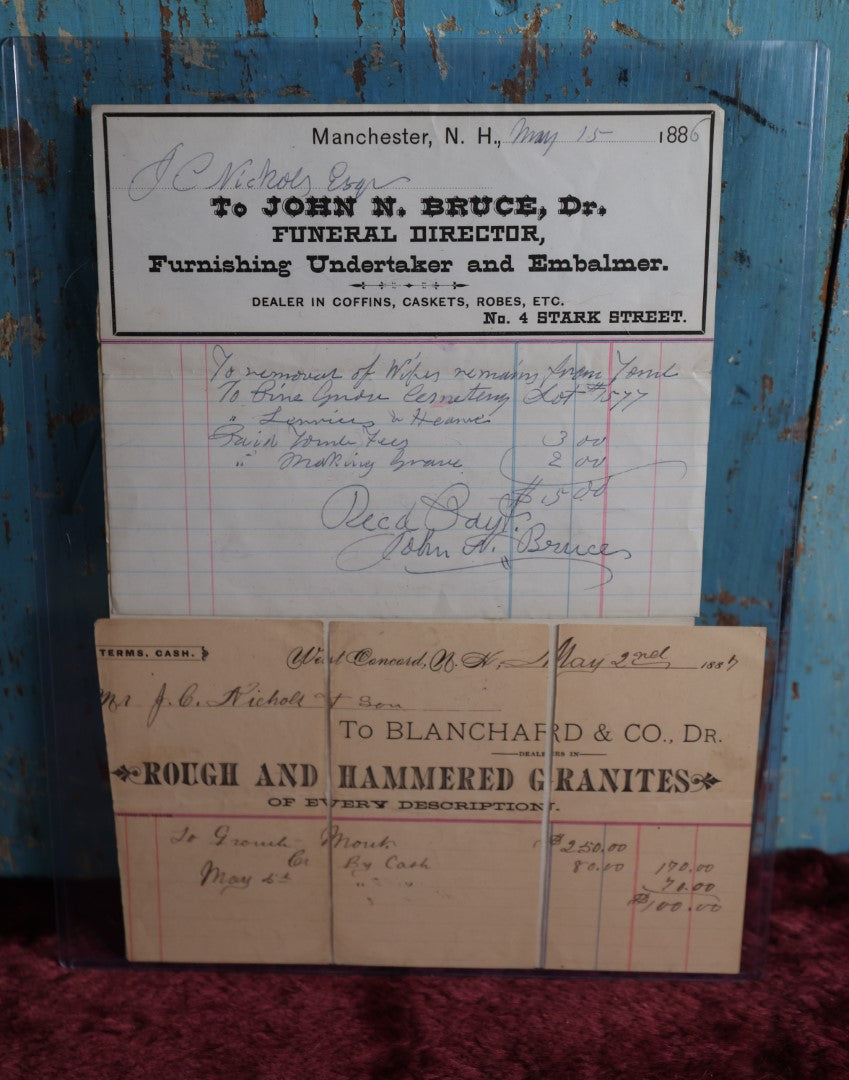 Manchester, N. H., May 15 1886
J C Nichols Esqr
To JOHN N. BRUCE, Dr.
FUNERAL DIRECTOR,
Furnishing Undertaker and Embalmer.
DEALER IN COFFINS, CASKETS, ROBES, ETC.
No. 4 STARK STREET.
To removal of Wifes remains from Tomb
To Pine Grove Cemetery Lot #1577
" Services & Hearse
Paid Tomb Fees 3 00
" Making Grave 2 00
$15.00
Recd Payt.
John N. Bruce
TERMS, CASH.
West Concord, N. H., May 2nd 1887
Mr J. C. Nichols & Son
To BLANCHARD & CO., DR.
DEALERS IN
ROUGH AND HAMMERED GRANITES
OF EVERY DESCRIPTION.
To Granite $250.00
Cr By Cash 80.00 170.00
May " " 70.00
$100.00